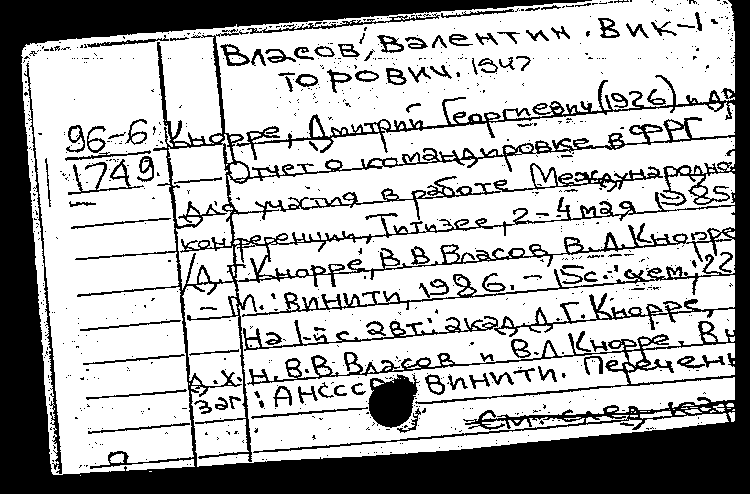 Власов, Валентин Вик-
торович. 1947
96-6 Кнорре, Дмитрий Георгиевич (1926) и др
1749. Отчет о командировке в ФРГ
для участия в работе Международной
конференции, Титизее, 2-4 мая 1985
/Д.Г.Кнорре, В.В.Власов, В.Л.Кнорре
.-М.: ВИНИТИ, 1986. - 15с.: схем.; 22
На 1-й с. авт.: акад. Д.Г.Кнорре,
д.х.н. В.В.Власов и В.Л.Кнорре. В н
заг.: АНСССР ВИНИТИ. Перечень
См. след. кар